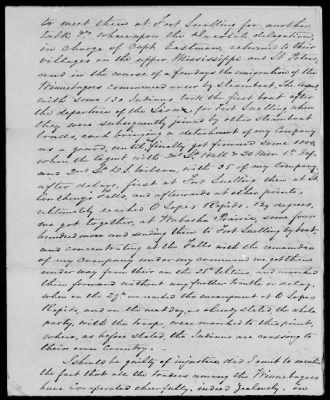 to meet them at Fort Snelling for another
talk &c Whereupon the delegation,
in charge of Capt. Eastman, returned to their
villages on the upper Mississippi and St Peters,
and in the course of a few days the migration of the
Winnebagoes commenced anew by steamboat. The Agent
with some 130 Indians took the first boat after
the departure of the Sioux, for Fort Snelling when
they were subsequently joined by other steamboat
loads, each bringing a detachment of my Company
as a guard, until finally got forward some 1000,
when the Agent with Lt Hall & 20 Men
and Lt Wilson, with 25 of my Company,
after delays, first at Fort Snelling then at St
Anthonys Falls, and afterwards at other points,
ultimately reached Rapids. By degrees,
we got together, at Wabasha Prairie, some four
hundred more and sending them to Fort Snelling by boat,
and concentrating at the Falls with the remainder
of my Company under my command we got them
under way from there on the 25th Ultimo, and marched
them forward without any further trouble or delay,
when on the 29th we reached the encampment at
Rapids, and on the next day, as already stated, the whole
party, with the troops, were marched to this point,
where, as before stated, the Indians are crossing to
their own Country.
I should be guilty of injustice, did I omit to mention
the fact that all the Traders among the Winnebagoes
have cooperated cheerfully, indeed zealously, in